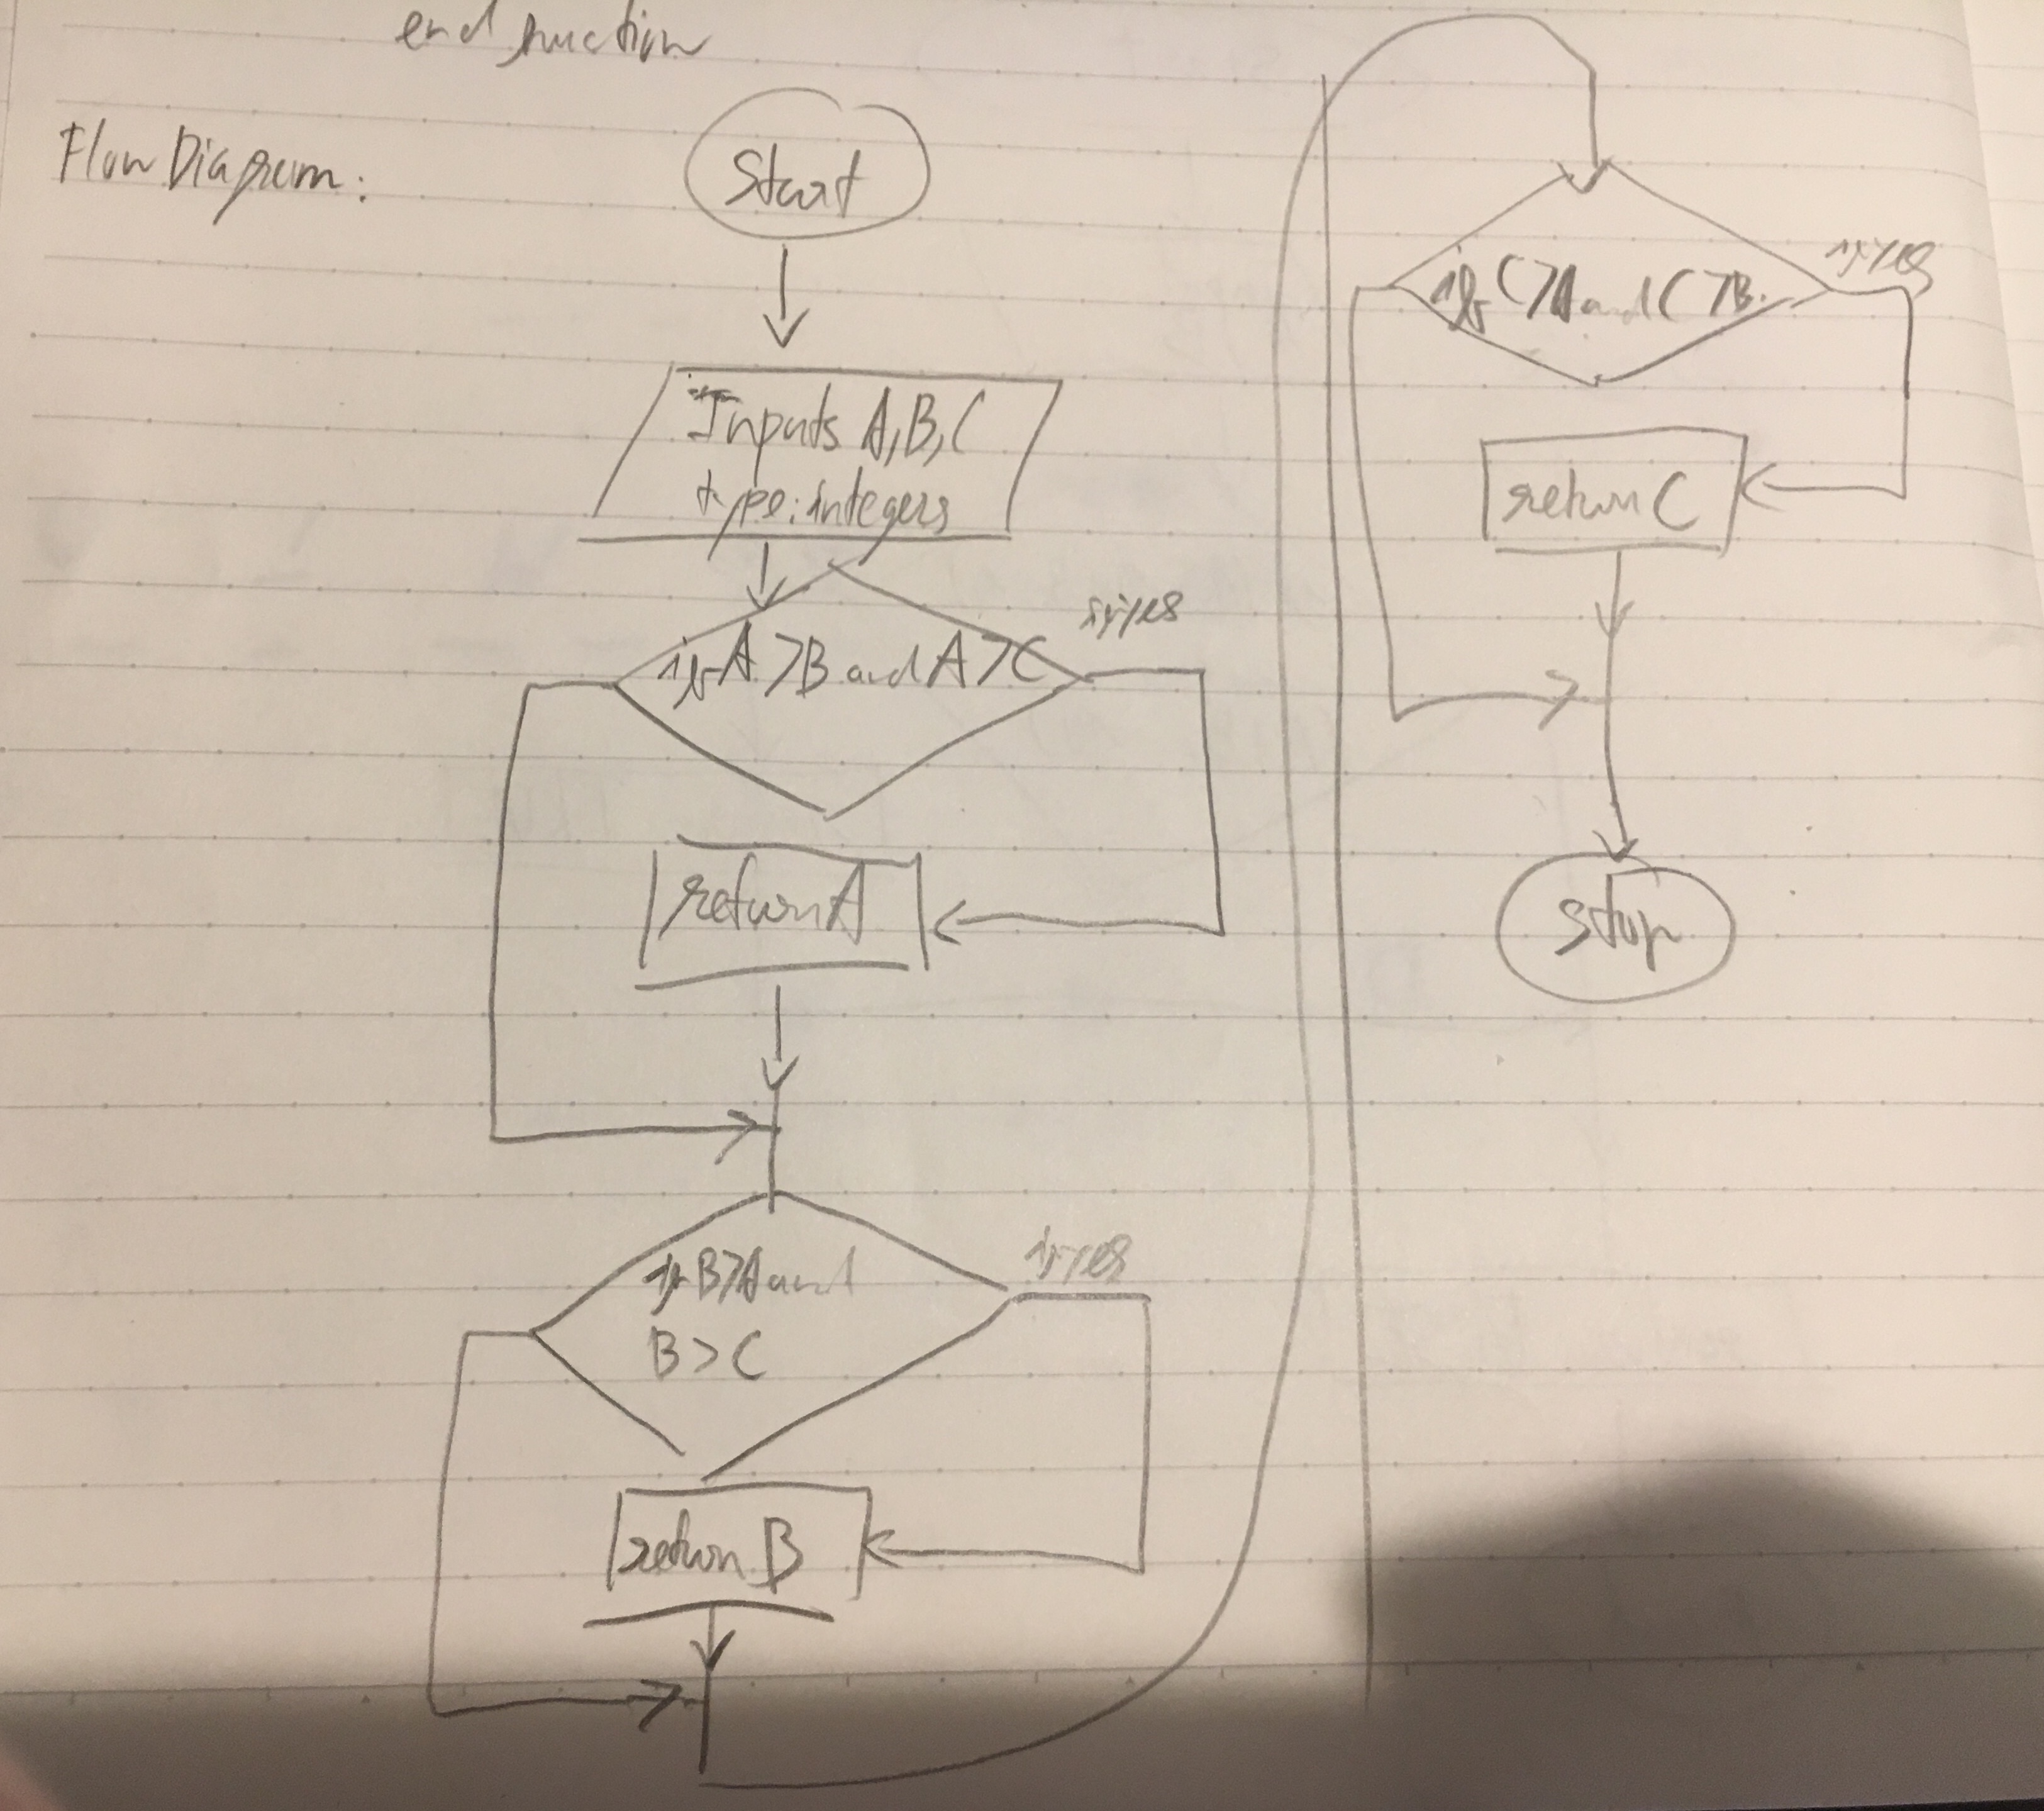 end function
Flow Diagram:
Start
Inputs A,B,C
type: integers
if A >B and A >C
if yes
return A
if B>A and
B > C
if yes
return B
if C>A and C>B.
if yes
return C
stop